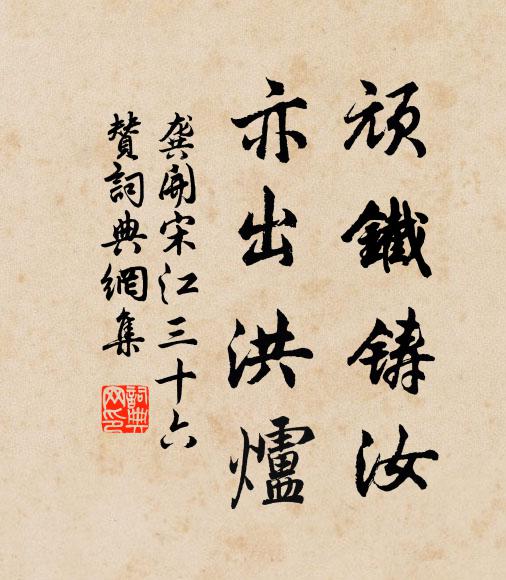 頑鐵鑄汝
亦出洪爐
龔開宋江三十六
贊詞典網集
詞典
网印